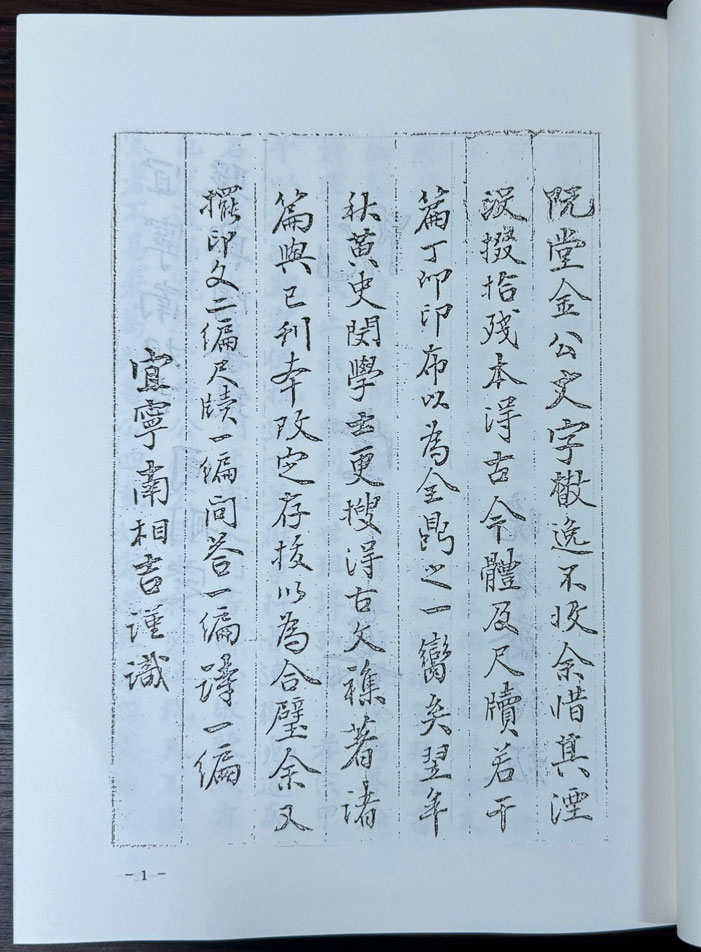 阮堂金公文字散逸不收余惜其湮
沒掇拾殘本得古今體及尺牘若干
篇丁卯印布以為全鼎之一臠矣翌年
秋黃史閔學士更搜得古文襍著諸
篇與已刊本改定存拔以為合璧余又
擺印文二編尺牘一編問答一編詩一編
宜寧南相吉謹識
- 1 -